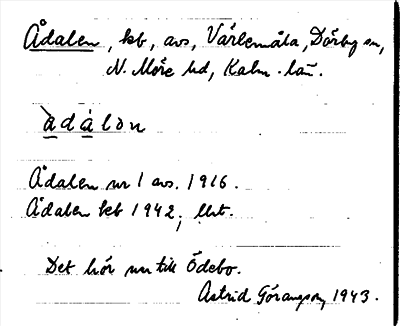 Ådalen, kb, avs, Värlemåla, Dörby sn,
N. Möre hd, Kalm. län.
àdálən
Ådalen nr 1 avs. 1916.
Ådalen kb 1942; Uht.
Det hör nu till Ödebo.
Astrid Göransson 1943.